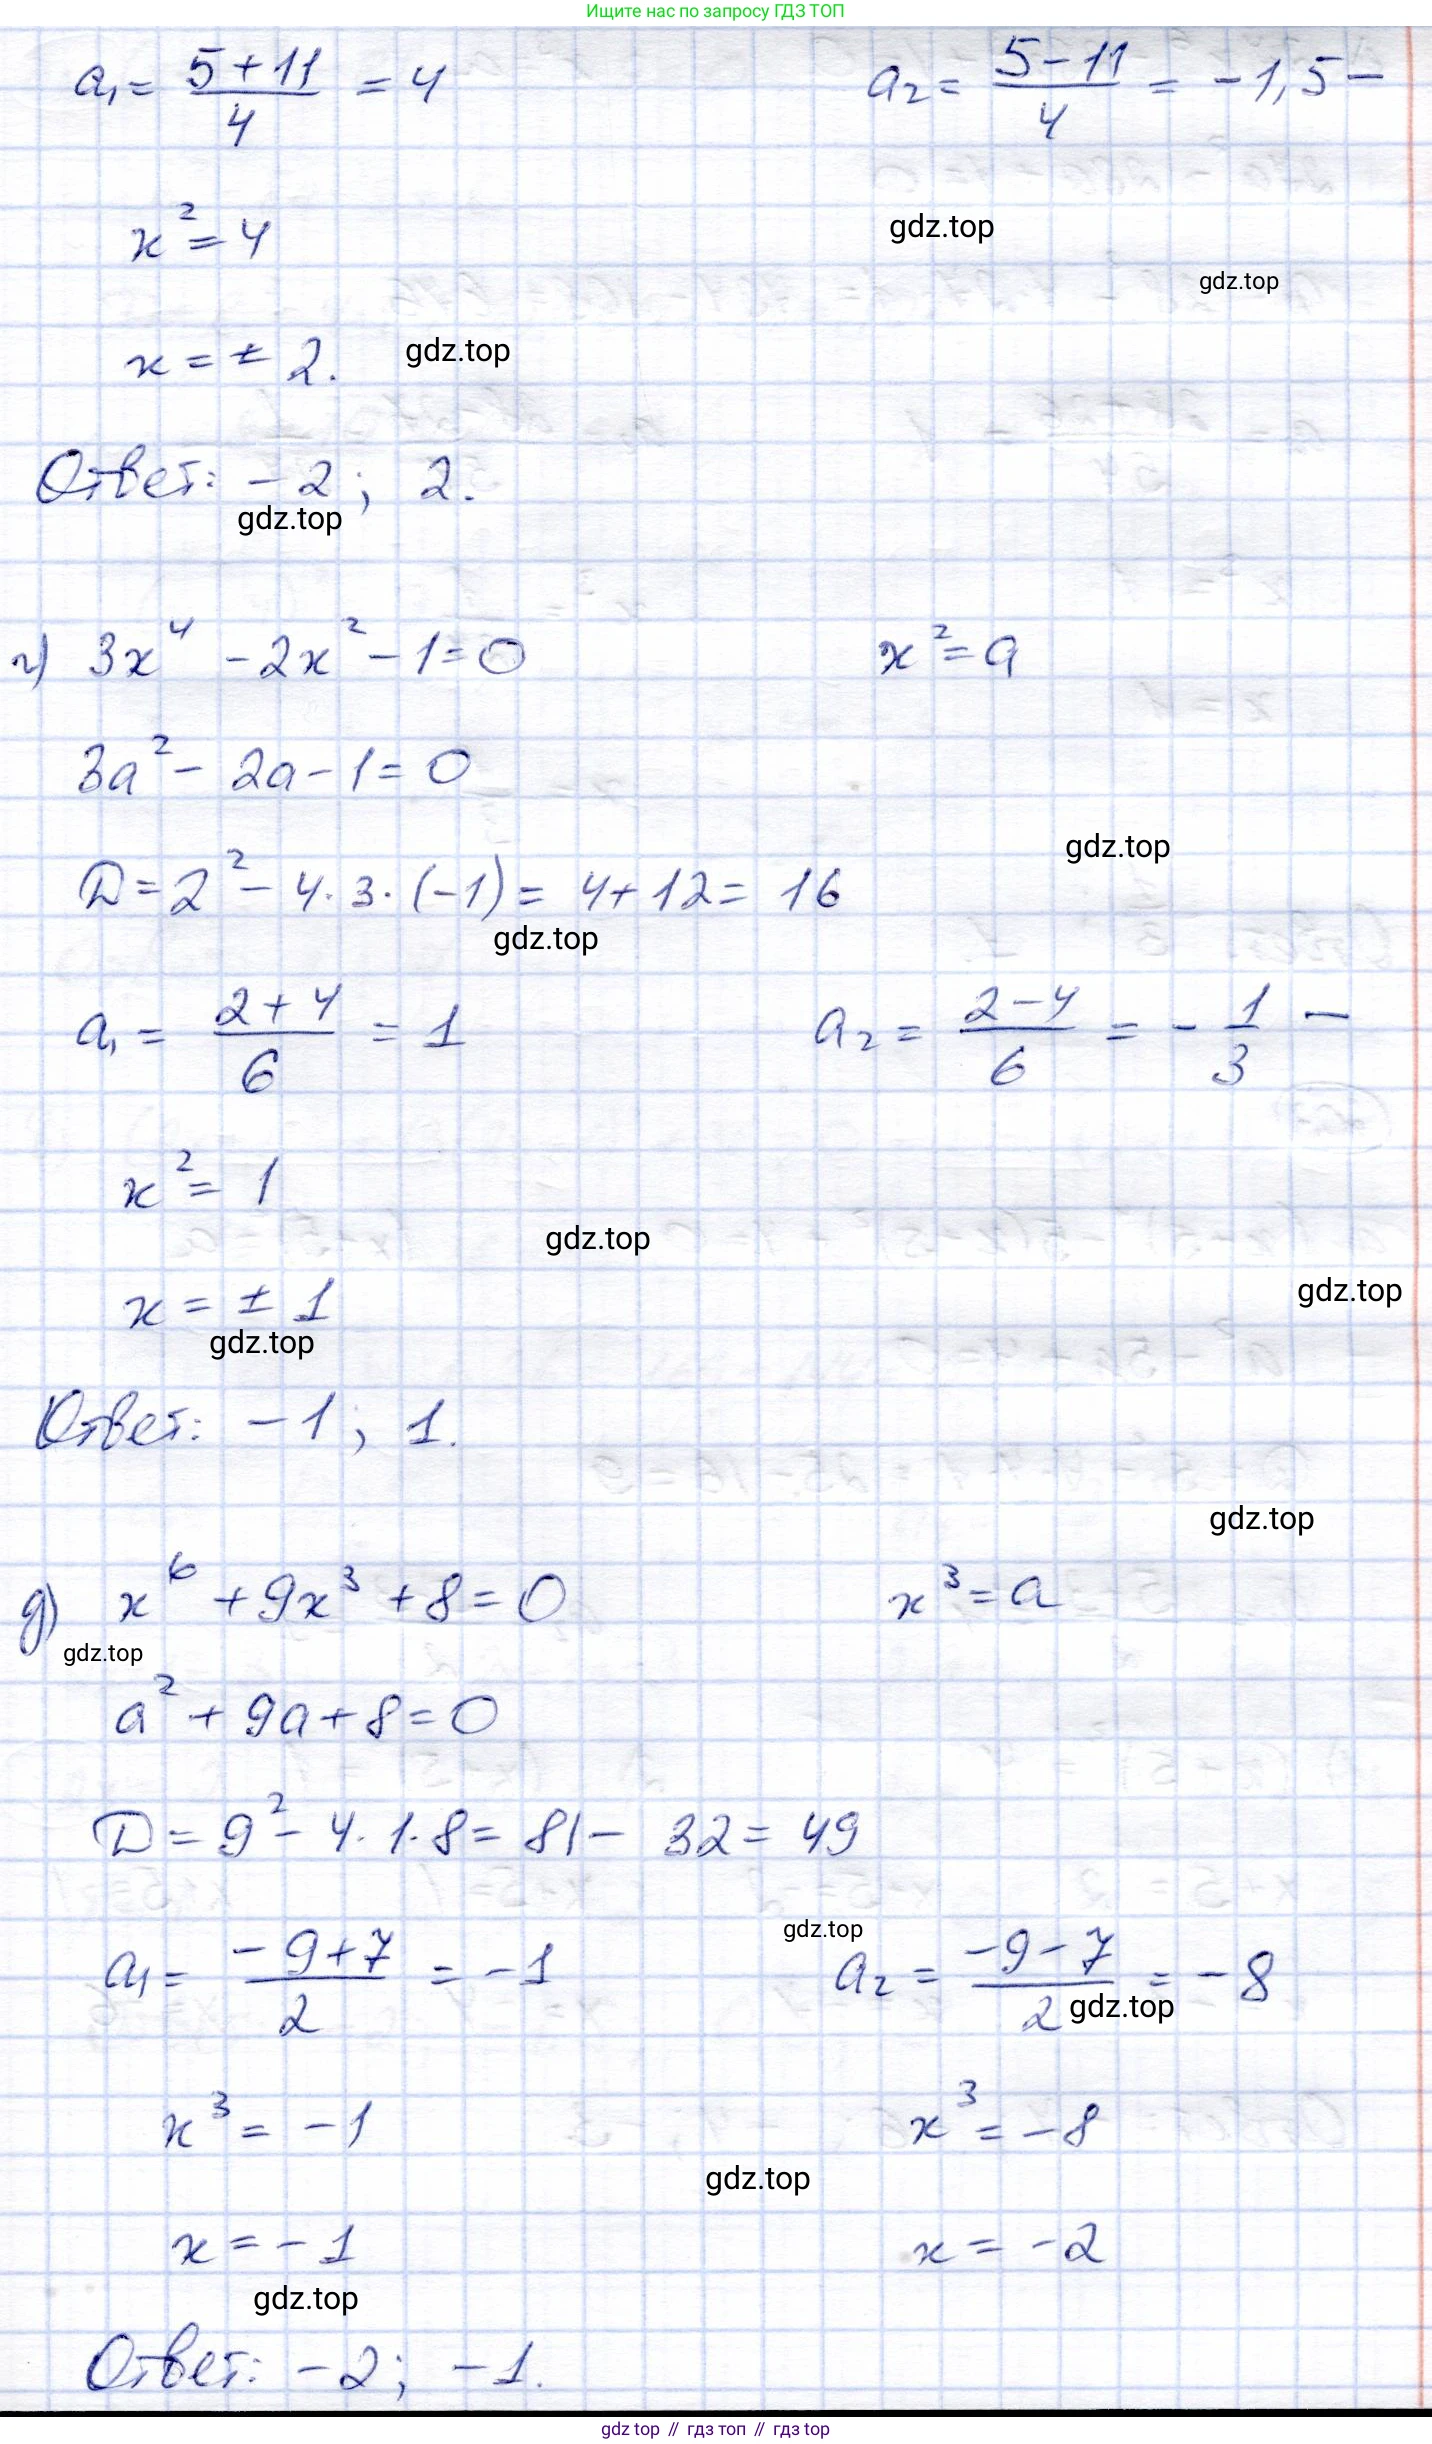 Ищите нас по запросу ГДЗ ТОП
a₁ = (5+11)/4 = 4    a₂ = (5-11)/4 = -1,5 –
x² = 4
gdz.top
gdz.top
x = ± 2.
gdz.top
Ответ: -2; 2.
gdz.top
г) 3x⁴ - 2x² - 1 = 0    x² = a
3a² - 2a - 1 = 0
gdz.top
D = 2² - 4·3·(-1) = 4+12 = 16
gdz.top
a₁ = (2+4)/6 = 1    a₂ = (2-4)/6 = -1/3 –
x² = 1
gdz.top
gdz.top
x = ± 1
gdz.top
Ответ: -1; 1.
gdz.top
д) x⁶ + 9x³ + 8 = 0    x³ = a
gdz.top
a² + 9a + 8 = 0
D = 9² - 4·1·8 = 81 - 32 = 49
gdz.top
a₁ = (-9+7)/2 = -1    a₂ = (-9-7)/2 = -8
gdz.top
x³ = -1    x³ = -8
gdz.top
x = -1    x = -2
gdz.top
Ответ: -2; -1.
gdz top // гдз топ // gdz top